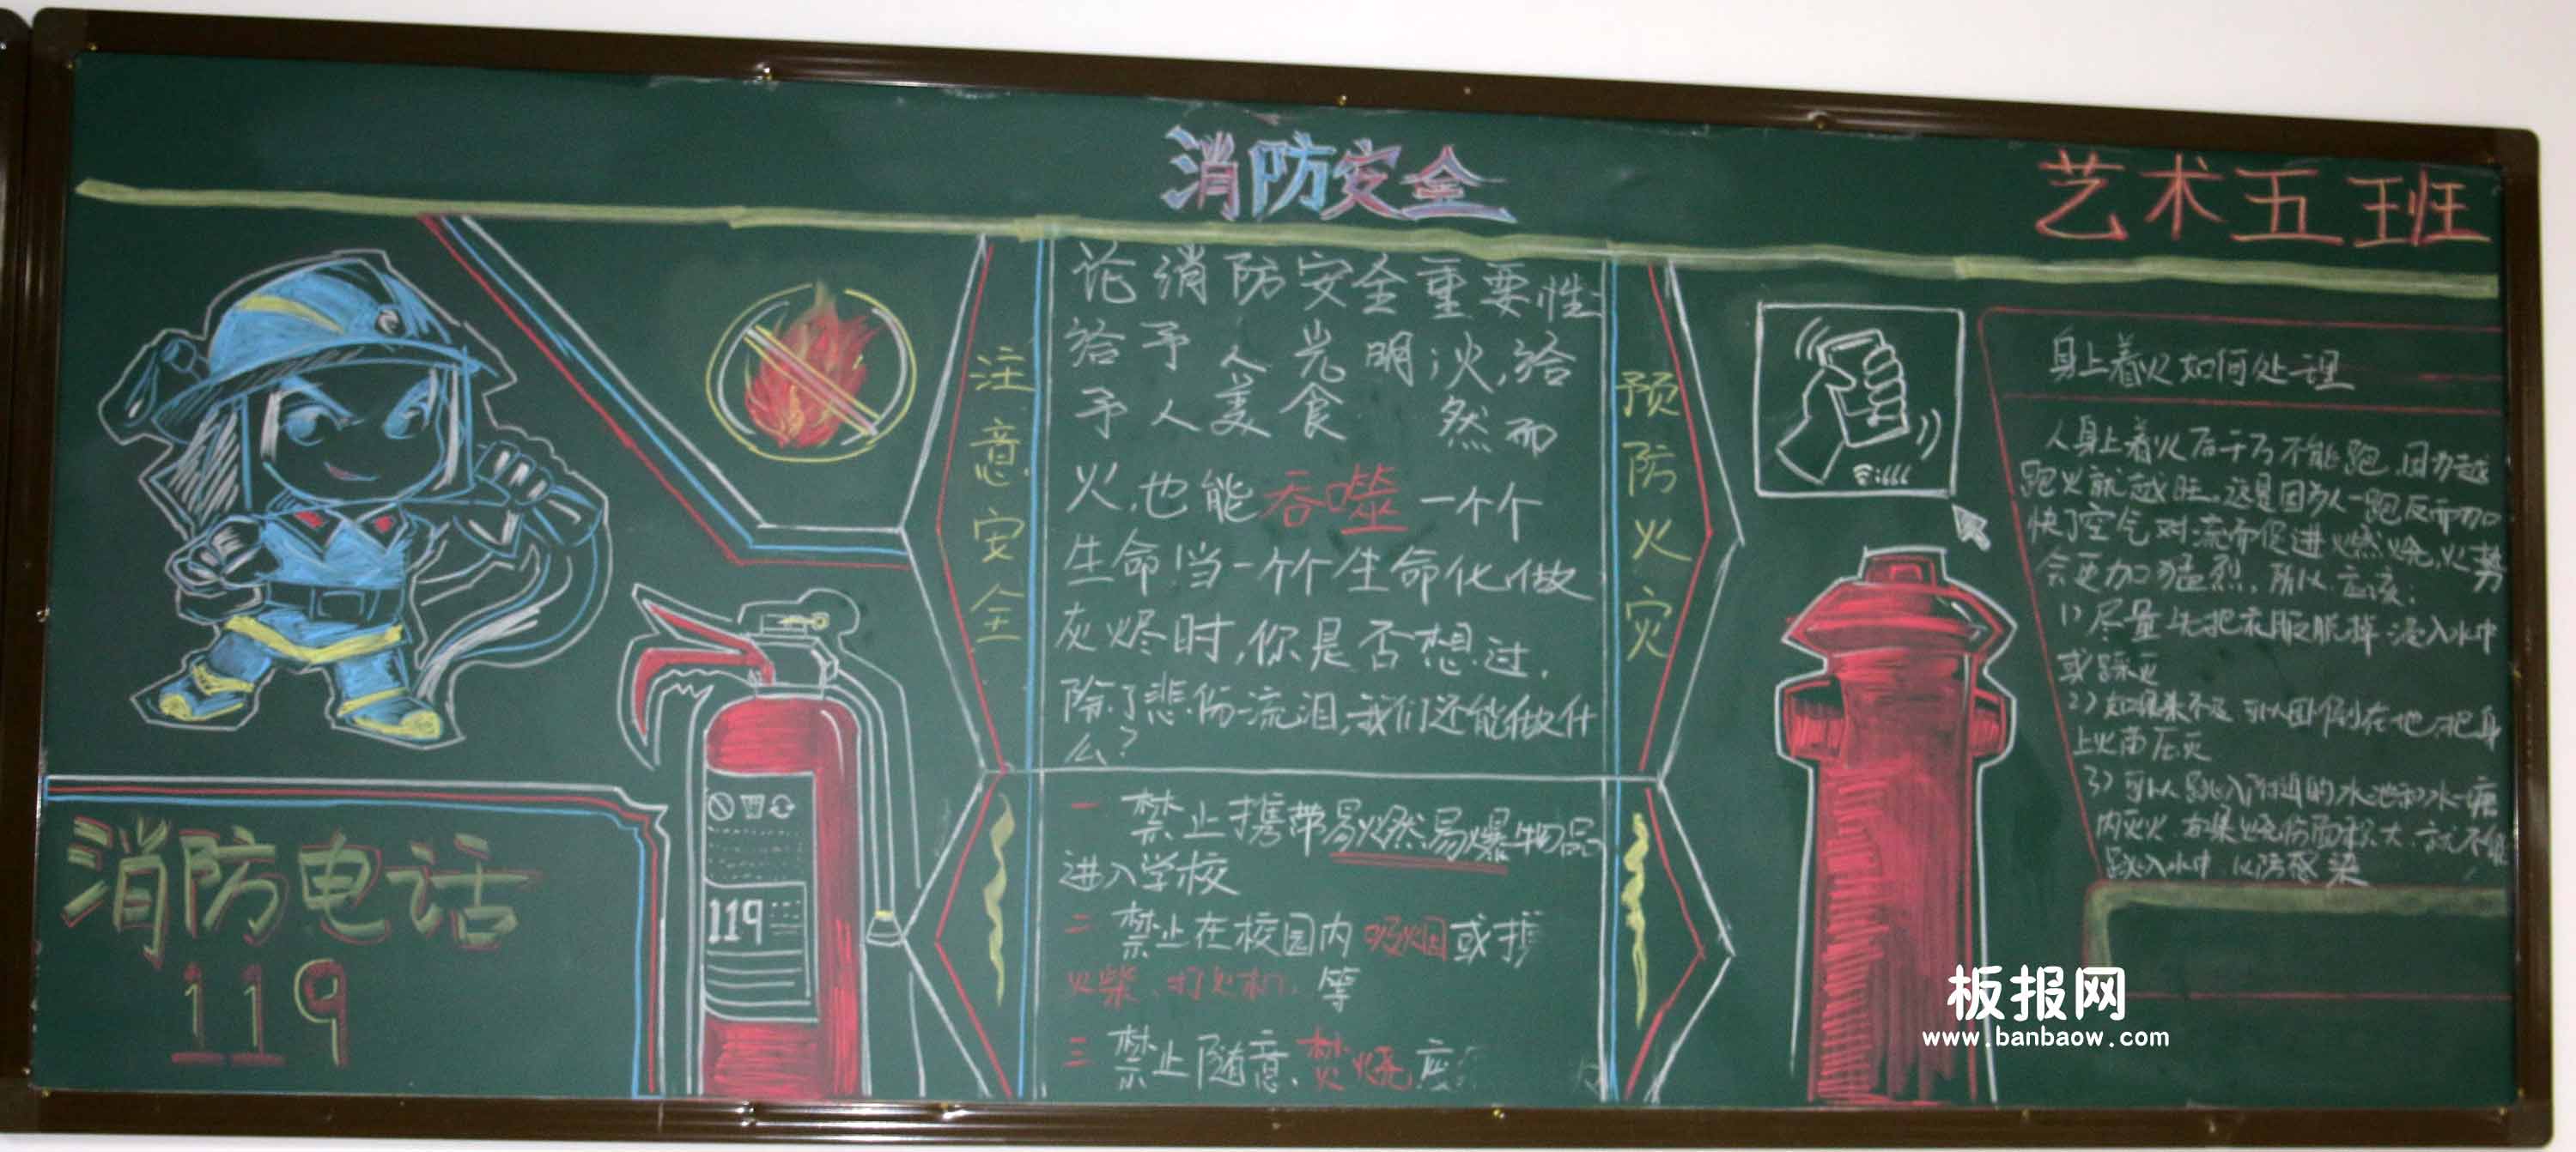 消防安全
艺术五班
注意安全
论消防安全重要性
给予人光明,火,给
予人美食 然而
火,也能吞噬一个个
生命,当一个个生命化做
灰烬时,你是否想过,
除了悲伤流泪,我们还能做什
么?
预防火灾
一 禁止携带易燃易爆物品
进入学校
二 禁止在校园内吸烟或携
火柴、打火机、等
三 禁止随意焚烧
消防电话
119
119
身上着火如何处理
人身上着火后千万不能跑,因为越
跑火就越旺。这是因为人一跑反而加
快了空气对流而促进燃烧,火势
会更加猛烈,所以,应该:
1)尽量先把衣服脱掉浸入水中
或踩灭
2)如果来不及可以卧倒在地,把身
上火苗压灭
3)可以跳入附近的水池和水塘
内灭火,若果烧伤面积大,就不能
跳入水中,以防感染
板报网
www.banbaow.com